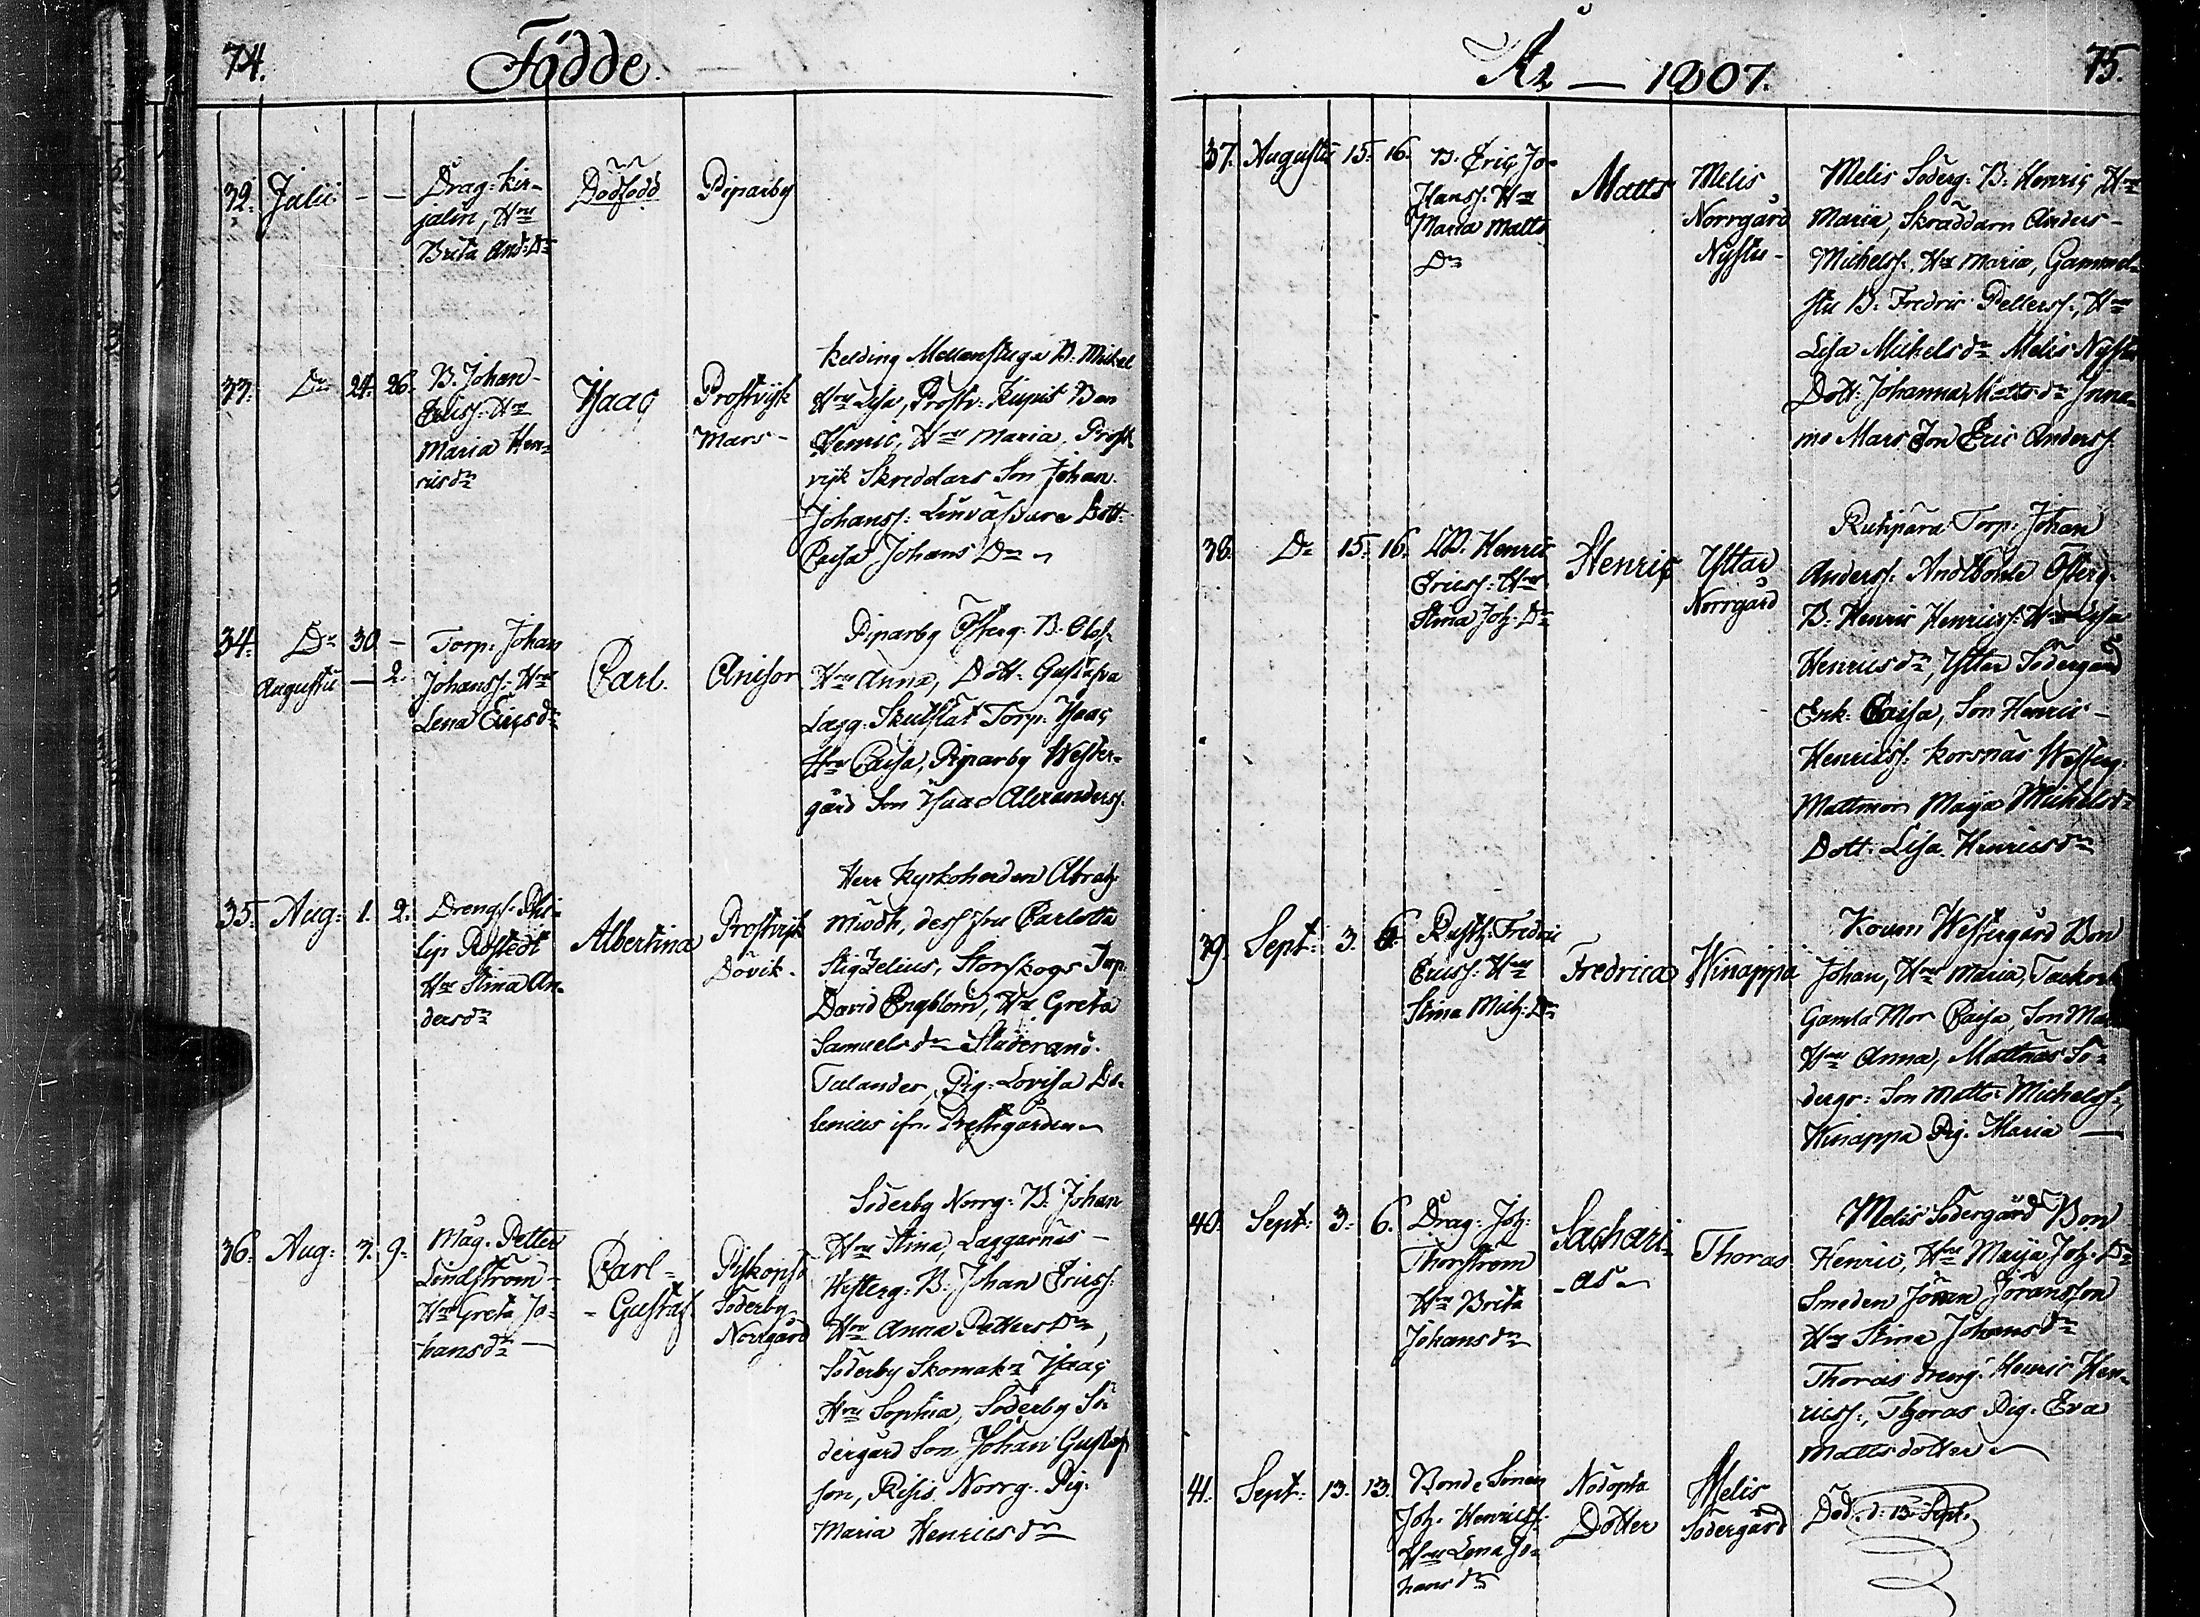 74.
Födde.
32. Julii — — Drag: Kir-
jalin, Hru
Brita And: Dr
Dödfödd
Piparby
33. Do 24. 26. B. Johan
Ericss: Hru
Maria Hen-
ricsdr
Isaac
Prostvik
Mars
Kelding Mellanstuga B: Mikel
Hru Lisa, Prostv: Kupis Bon
Henric, Hru Maria, Prost
vik Skreddars Son Johan
Johanss: Dott:
Caisa Johans Dr
34. Do 30 —
Augusti — 2.
Torp: Johan
Johanss: Hru
Lena Ericsdr
Carl.
Anisor
Piparby Österg: B. Olof
Hru Anna, Dott: Gustafva
Lazg: Skutslat Torp: Isaac
Hru Caisa, Piparby Wester-
gård Son Isaac Alexanderss.
35. Aug: 1. 2. Drengs. Phi-
lip Rostedt
Hru Stina An-
dersdr
Albertina
Prostvik
Dövik.
Herr Kyrkoherden Abrah:
Miödh, dess fru Carlotta
Stigzelius, Storskogs Torp:
David Engblom, Hru Greta
Samuelsdr Studerand.
Talander, Pig: Lovisa
ifn. Prestgården
36. Aug: 7. 9. Måg. Petter
Lindström
Hru Greta Jo-
hansdr
Carl-
-Gustaf.
Piskopsö
Söderby
Norrgård
Söderby Norrg: B. Johan
Hru Stina, Laggarnäs
Westerg: B: Johan Ericss.
Hru Anna Petters Dr,
Söderby Skomakr Isaac
Hru Sophia, Söderby Sö-
dergård Son Johan Gustaf
son, Risis Norrg. Pig:
Maria Henricsdr
År — 1807.
75.
37. Augusti 15. 16. B. Eric Jo-
hanss. Hru
Maria Matts
Dr
Matts
Melis
Norrgård
Nystu
Melis Söderg: B: Henric, Hru
Maria, Skräddarn Anders
Michelss. Hru Maria, Gammel-
stu B: Fredric Petterss:, Hru
Lisa Michelsdr Melis Nystu
Dott: Johanna Mattsdr Inna-
mo Mars Son Eric Anderss.
38. Do 15. 16. B. Henric
Ericss: Hru
Stina Joh. Dr
Henric
Yttar
Norrgård
Torp: Johan
Anderss. Andlböhle Österg.
B: Henric Henricss. Hru Lisa
Henricsdr, Yttar Södergård
Enk: Caisa, Son Henric
Henricss. Korsnäs Westerg:
Mattmor Maja Michelsdr
Dott: Lisa Henricsdr
39. Sept: 3. 6. Rusth: Fredric
Ericss: Hru
Stina Mich: Dr
Fredrica
Winappa
Koum Westergård Bon
Johan, Hru Maria, Tackork
Gamla Mor Caisa, Son
Hru Anna, Mattnäs Sö-
dergr: Son Matts Michelss.,
Winappa Pig. Maria —
40. Sept: 3. 6. Drag: Joh:
Thorström
Hru Brita
Johansdr
Sachari-
-as
Thoras
Melis Södergård Bon
Henric, Hru Maija Joh. Dr
Smeden Jöran Joransson
Hru Stina Johansdr
Thorais dreng: Henric Hen-
ricss:, Thoras Pig: Eva
Mattsdotter
41. Sept: 13. 13. Bonde Sonen
Joh. Henricss.
Hru Lena Jo-
hansdr
Nödöpta
Dotter
Melis
Södergård
Död. d: 13. Sept.